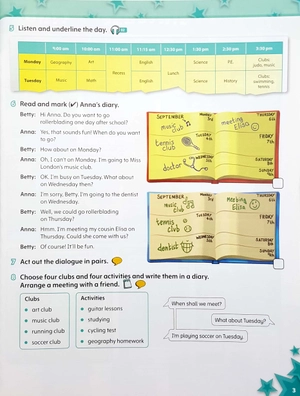 Listen and underline the day.
9:00 am 10:00 am 11:00 am 11:15 am 12:30 pm 1:30 pm 2:30 pm 3:30 pm
Monday Geography Art Recess English Lunch Science P.E. Clubs: judo, music
Tuesday Music Math English Science History Clubs: swimming, tennis
Read and mark (✔) Anna's diary.
Betty: Hi Anna. Do you want to go
rollerblading one day after school?
Anna: Yes, that sounds fun! When do you want
to go?
Betty: How about on Monday?
Anna: Oh, I can't on Monday. I'm going to Miss
London's music club.
Betty: OK. I'm busy on Tuesday. What about
on Wednesday then?
Anna: I'm sorry, Betty. I'm going to the dentist
on Wednesday.
Betty: Well, we could go rollerblading
on Thursday?
Anna: Hmm. I'm meeting my cousin Elisa on
Thursday. Could she come with us?
Betty: Of course! It'll be fun.
SEPTEMBER
music club
tennis club
doctor
meeting Elisa
FRIDAY
7th
SATURDAY
8th
SUNDAY
9th
SEPTEMBER
music club
tennis club
dentist
Meeting Elisa
FRIDAY
7th
SATURDAY
8th
SUNDAY
9th
Act out the dialogue in pairs.
Choose four clubs and four activities and write them in a diary.
Arrange a meeting with a friend.
Clubs
• art club
• music club
• running club
• soccer club
Activities
• guitar lessons
• studying
• cycling test
• geography homework
When shall we meet?
What about Tuesday?
I'm playing soccer on Tuesday.
3